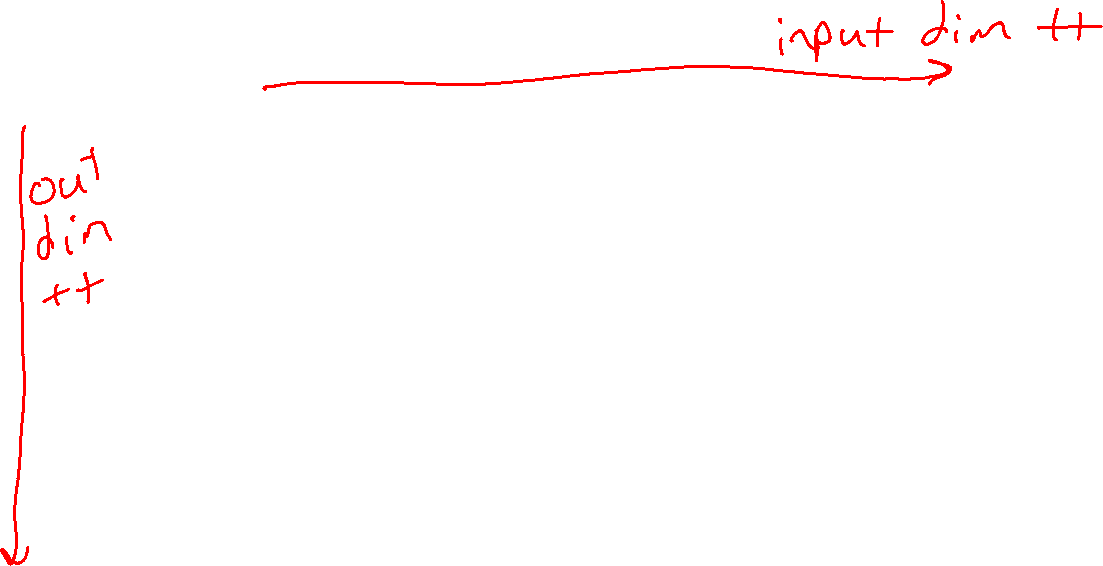 input dim ++
out
dim
++